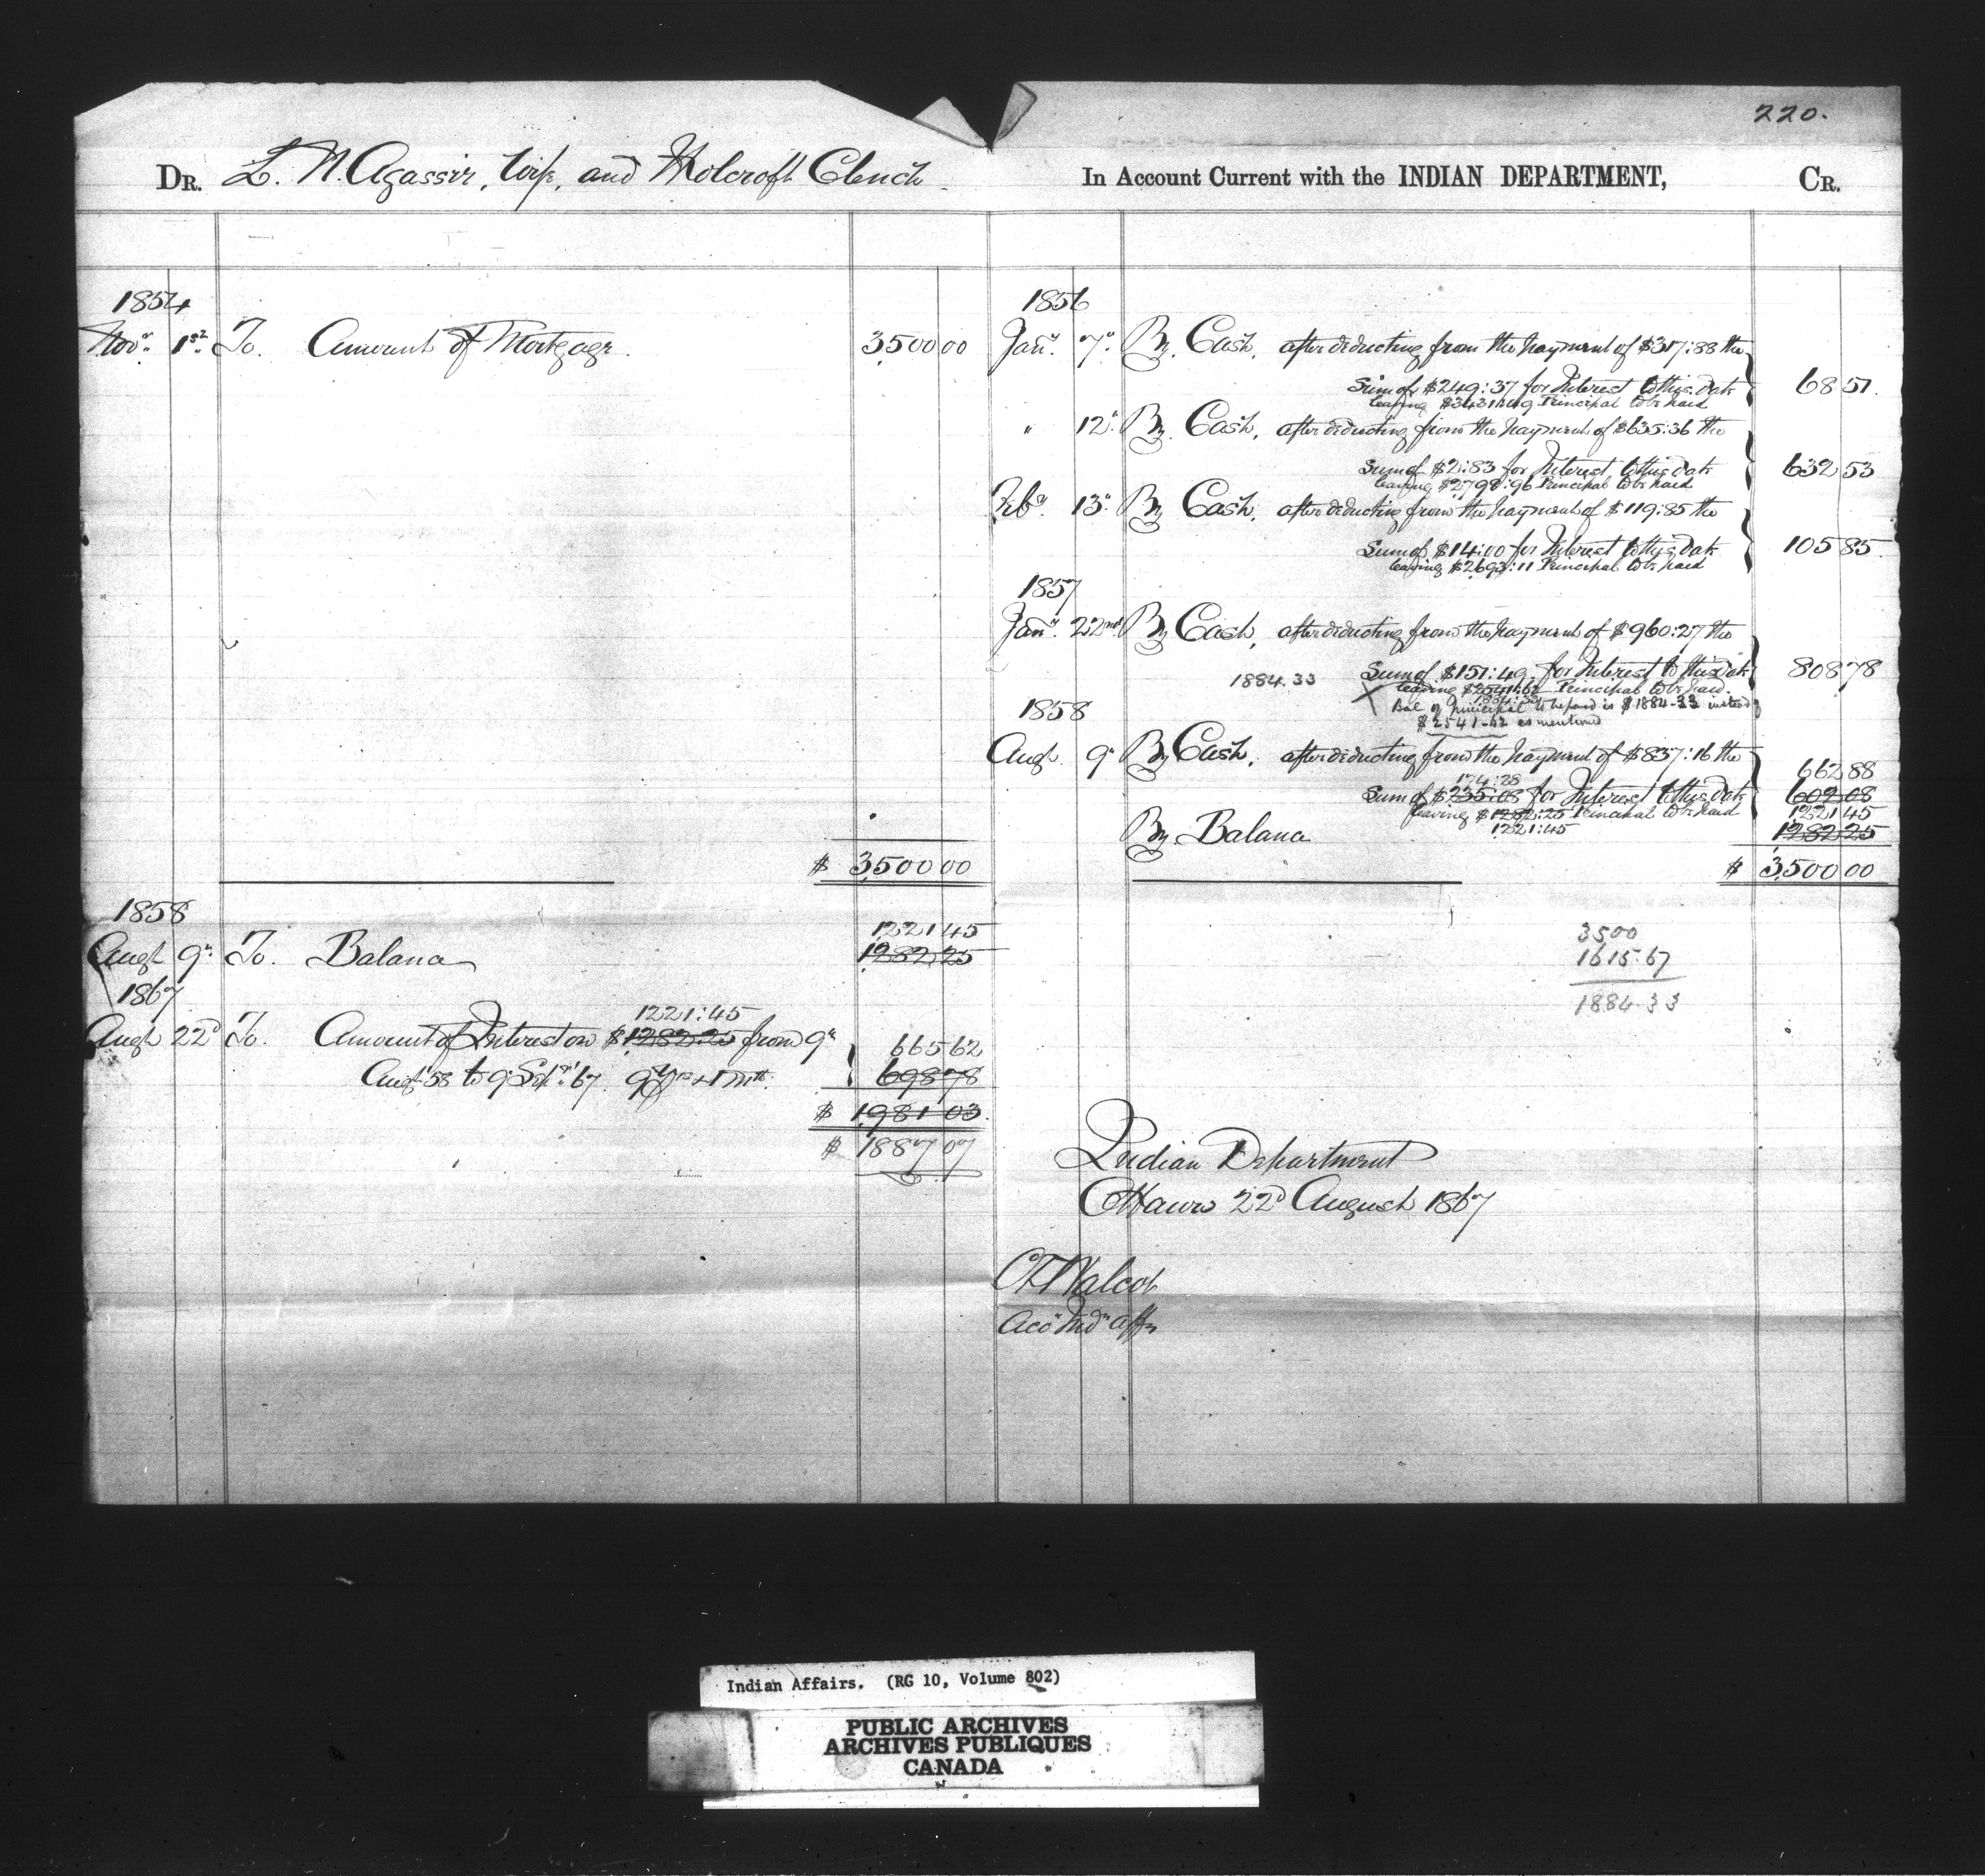 220.
DR. L. N. Agassiz, Wife, and Holcroft Clench
In Account Current with the INDIAN DEPARTMENT, CR.
1854
Novr. 1st. To. Amount of Mortgage. 3,500 00
1858
$ 3,500 00
1221 45
Augt 9th To. Balance 1282 25
1867
1221:45
Augt 22d To. Amount of Interest on $1282.25 from 9th
665 62
Augt '58 to 9 Sepr. '67. 9 Yrs & 1 Mth. 698 78
$ 1,981 03
$ 1887 07
1856
Jany. 7th. By Cash, after deducting from the payment of $317:88 the
Sum of $249:37 for Interest to this date 68 51.
leaving $3431:49 Principal to be paid
" 12th. By Cash, after deducting from the payment of $635:36 the
Sum of $2:83 for Interest, to this date 632 53
leaving $2798:96 Principal to be paid
Feby. 13th. By Cash, after deducting from the payment of $119:85 the
Sum of $14:00 for Interest to this date 105 85.
leaving $2693:11 Principal to be paid
1857
Jany. 22nd. By Cash, after deducting from the payment of $960:27 the
1884.33 Sum of $151:49 for Interest to this date 808 78
leaving $2541:62 Principal to be paid.
1884:33
Bal of principal to be paid is $1884-33 instead
$2541-62 as mentioned
1858
Augt. 9th By Cash, after deducting from the payment of $837:16 the
174:28 662 88
Sum of $235:08 for Interest to this date 602 08
leaving $1282:25 Principal to be paid 1221 45
1221:45
By Balance 1282 25
$ 3,500 00
3500
1615.67
1884.33
Indian Department
Ottawa 22d August 1867
C T Walcot
Acct Indn Affrs
Indian Affairs. (RG 10, Volume 802)
PUBLIC ARCHIVES
ARCHIVES PUBLIQUES
CANADA